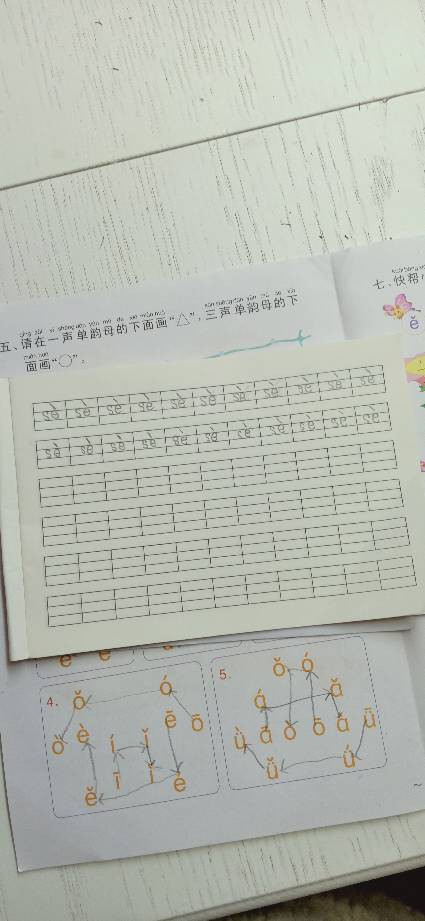 qǐng zài yī shēng dān yùn mǔ de xià miàn huà sān shēng dān yùn mǔ de xià
五、请在一声单韵母的下面画“△”，三声单韵母的下
miàn huà
面画“○”。
kuài bāng
七、快帮
sè sè sè sè sè sè sè sè sè sè sè
sè sè sè sè sè sè sè sè sè sè sè
e e
4. ǒ ó
ò è í ǐ ē ō
ě ī ì é
5. ǒ ó
á ǎ
ǜ ā ò ō à ǖ
ǚ ǘ